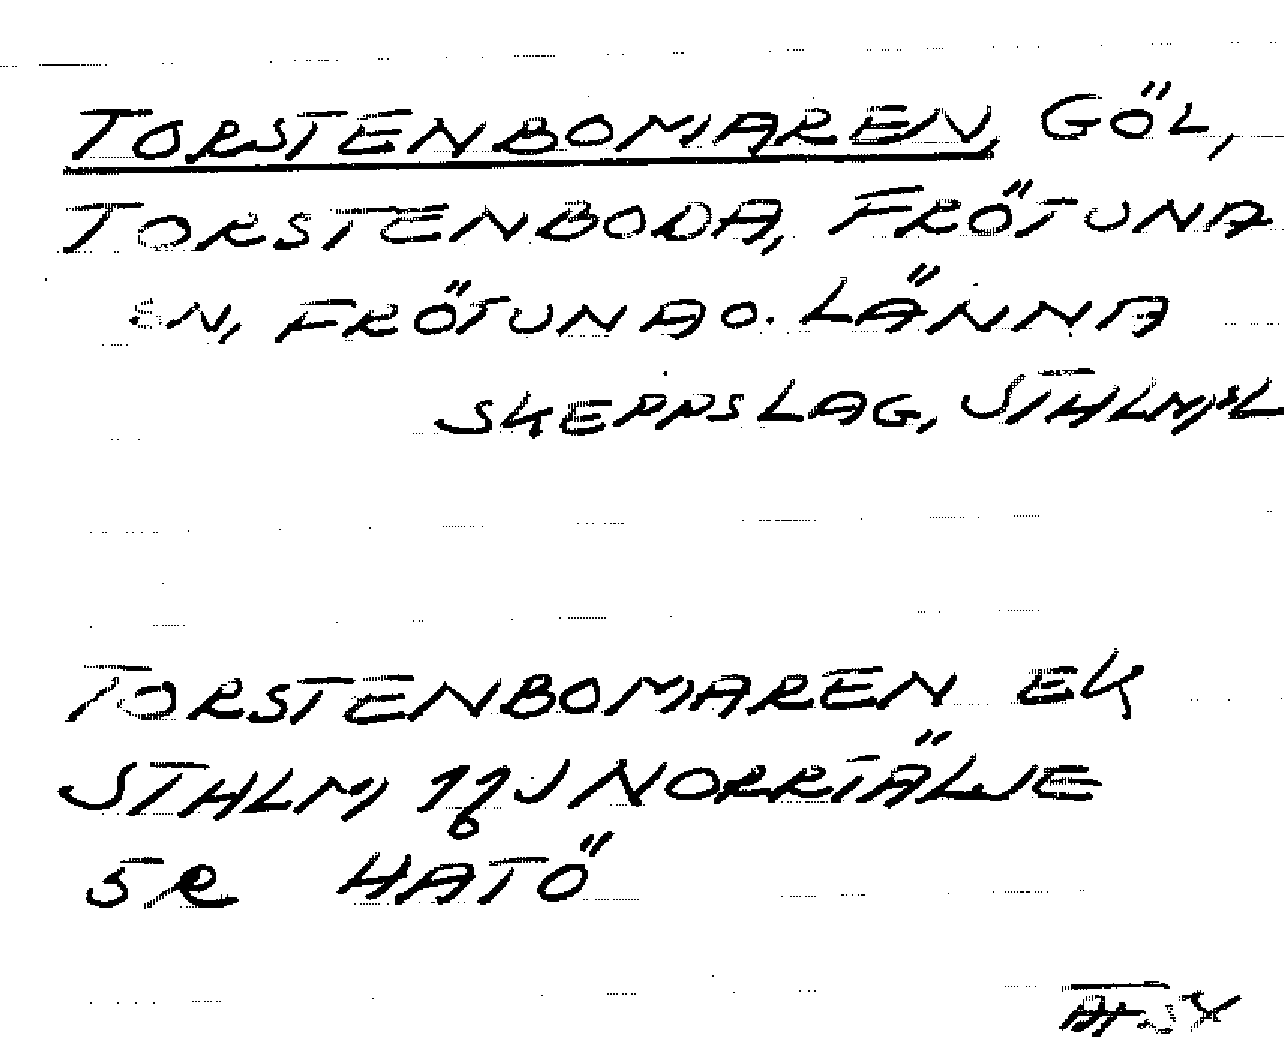 TORSTENBOMAREN, GÖL,
TORSTENBODA, FRÖTUNA
SN, FRÖTUNA O. LÄNNA
SKEPPSLAG, STHLMSL
TORSTENBOMAREN EK
STHLM, 11J NORRTÄLJE
5R HATÖ